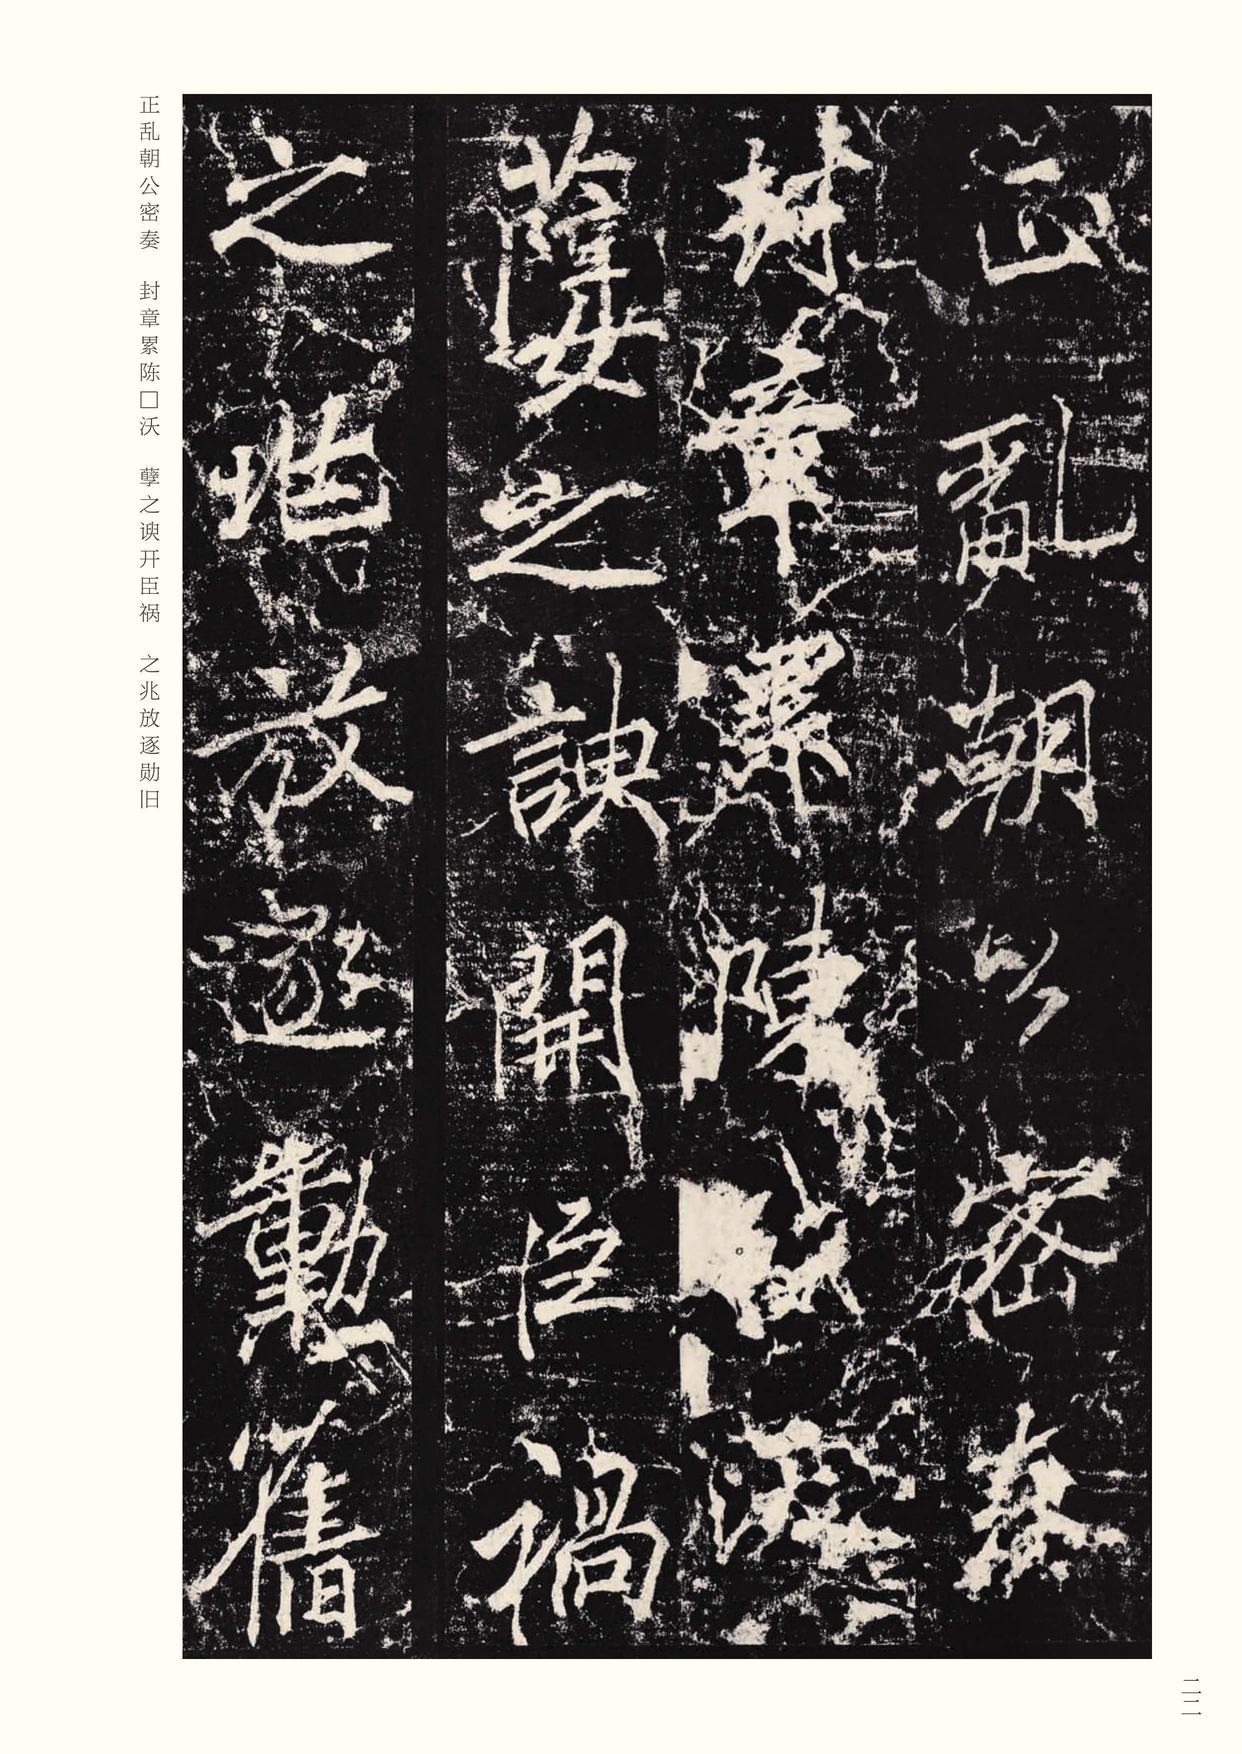 正亂朝公密奏
封章累陳
之諛開臣禍
之放逐勳舊
正乱朝公密奏　封章累陈□沃　孽之谀开臣祸　之兆放逐勋旧
二二